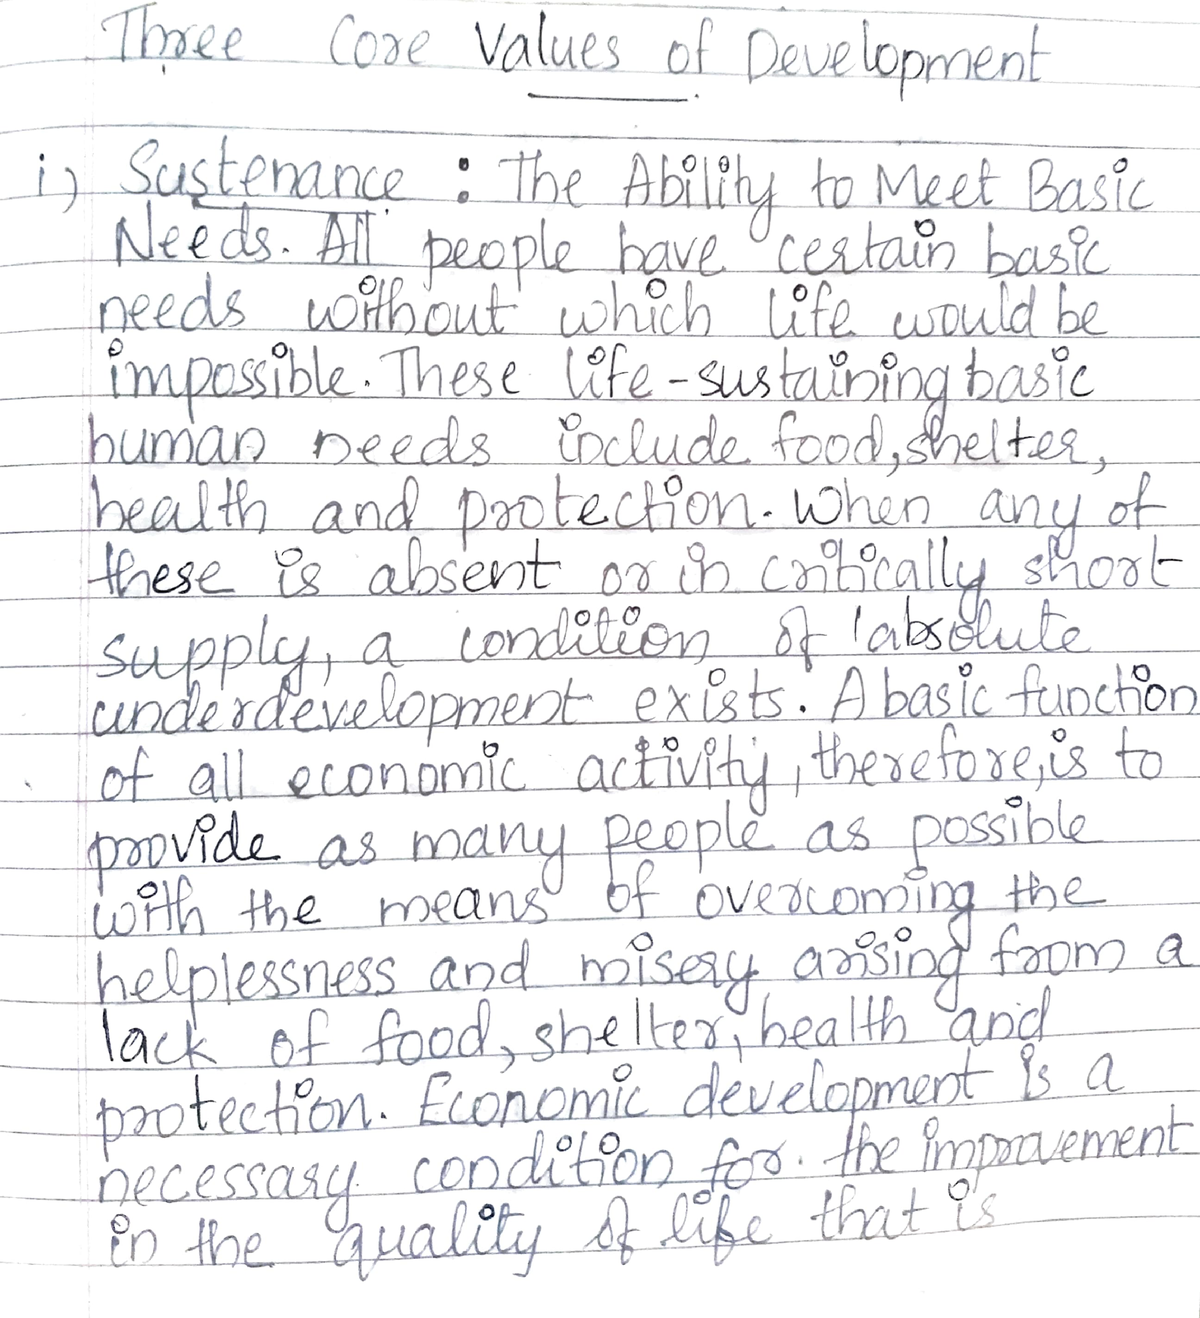 Three Core Values of Development
i) Sustenance : The Ability to Meet Basic
Needs. All people have certain basic
needs without which life would be
impossible. These life-sustaining basic
human needs include food, shelter,
health and protection. When any of
these is absent or in critically short
supply, a condition of 'absolute
underdevelopment exists. A basic function
of all economic activity, therefore, is to
provide as many people as possible
with the means of overcoming the
helplessness and misery arising from a
lack of food, shelter, health and
protection. Economic development is a
necessary condition for the improvement
in the quality of life that is